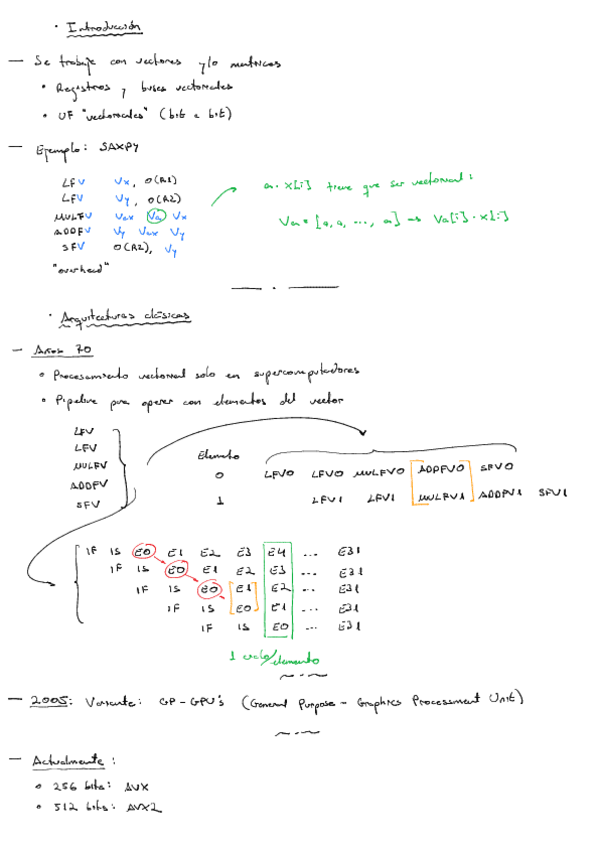 · Introducción
— Se trabaja con vectores y/o matrices
• Registros y buses vectoriales
• UF "vectoriales" (bit a bit)
— Ejemplo: SAXPY
LFV Vx, 0(R1)
LFV Vy, 0(R2)
MULFV Vax Va Vx
ADDFV Vy Vax Vy
SFV 0(R2), Vy
"overhead"
a · x[i] tiene que ser vectorial:
Va = [a, a, ..., a] => Va[i] · x[i]
· Arquitecturas clásicas
— Años 70
• Procesamiento vectorial solo en supercomputadores
• Pipeline para operar con elementos del vector
LFV
LFV
MULFV
ADDFV
SFV
Elemento
0 LFV0 LFV0 MULFV0 ADDFV0 SFV0
1 LFV1 LFV1 MULFV1 ADDFV1 SFV1
IF IS E0 E1 E2 E3 E4 ... E31
IF IS E0 E1 E2 E3 ... E31
IF IS E0 E1 E2 ... E31
IF IS E0 E1 ... E31
IF IS E0 ... E31
1 ciclo/elemento
— 2005: Variante: GP-GPU's (General Purpose - Graphics Processment Unit)
— Actualmente:
• 256 bits: AVX
• 512 bits: AVX2